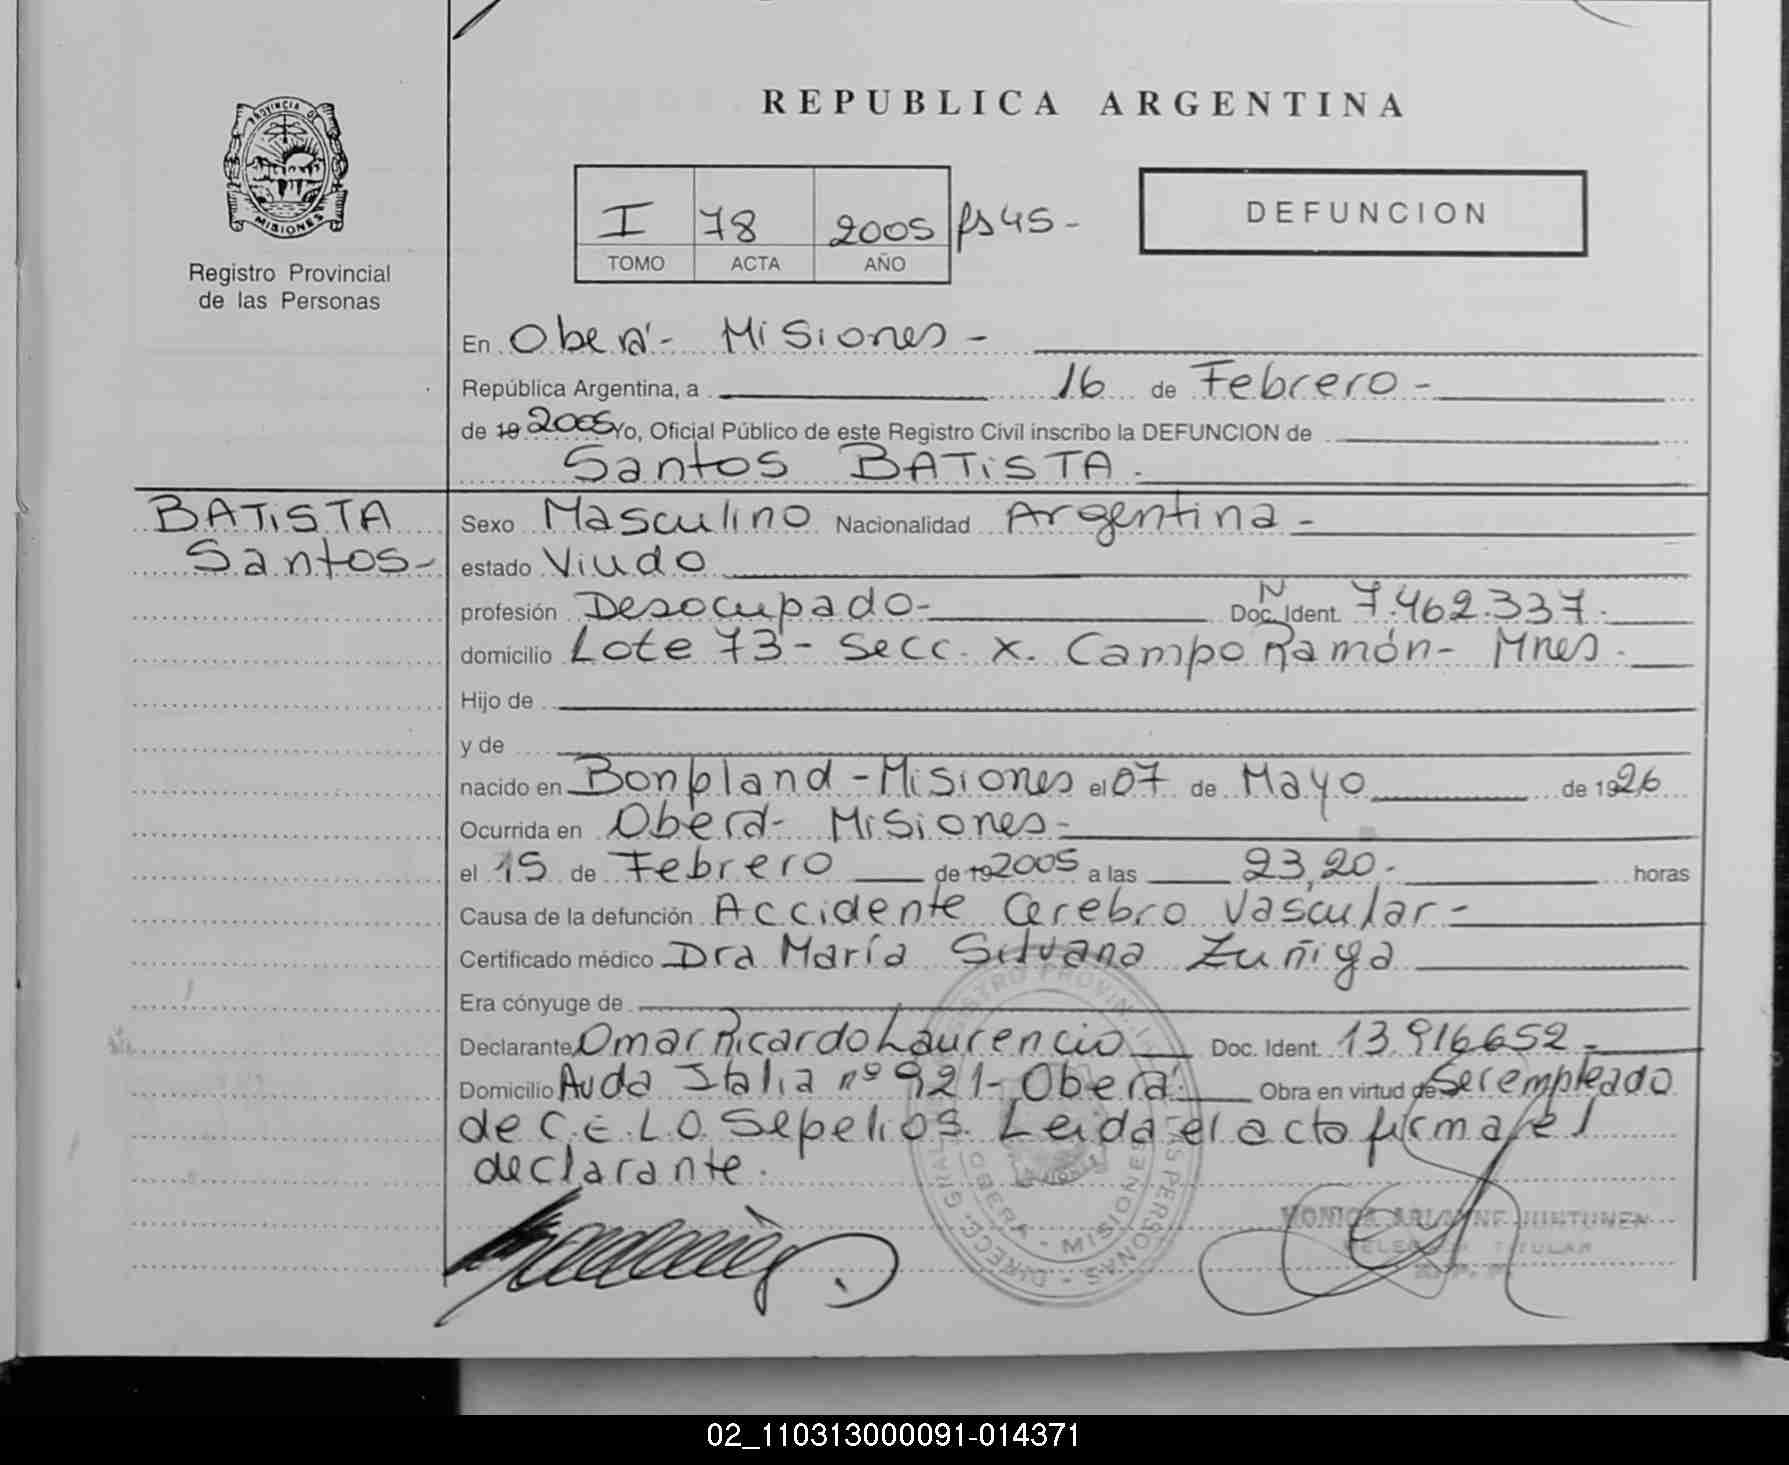 PROVINCIA DE
MISIONES
Registro Provincial
de las Personas
REPUBLICA ARGENTINA
I 78 2005 fs 45-
TOMO ACTA AÑO
DEFUNCION
En Oberá - Misiones -
República Argentina, a 16 de Febrero -
de 19 2005 Yo, Oficial Público de este Registro Civil inscribo la DEFUNCION de
Santos BATISTA.
BATISTA
Santos-
Sexo Masculino Nacionalidad Argentina -
estado Viudo
profesión Desocupado- Doc. Ident. N 7.462.337.
domicilio Lote 73 - Secc. X. Campo Ramón - Mnes.
Hijo de
y de
nacido en Bonpland - Misiones el 07 de Mayo de 1926
Ocurrida en Oberá - Misiones -
el 15 de Febrero de 19 2005 a las 23,20. horas
Causa de la defunción Accidente Cerebro Vascular -
Certificado médico Dra María Silvana Zuñiga
Era cónyuge de
Declarante Omar Ricardo Laurencio Doc. Ident. 13.916652 -
Domicilio Avda Italia nº 921- Oberá. Obra en virtud de Ser empleado
de C.E.L.O. Sepelios. Leida el acta firma el
declarante.
MONICA ARIANNE JUNTUNEN
DELEGADA TITULAR
R. P. P.
DIRECC. GRAL. REGISTRO PROVINCIAL DE LAS PERSONAS
OBERA - MISIONES
02_110313000091-014371